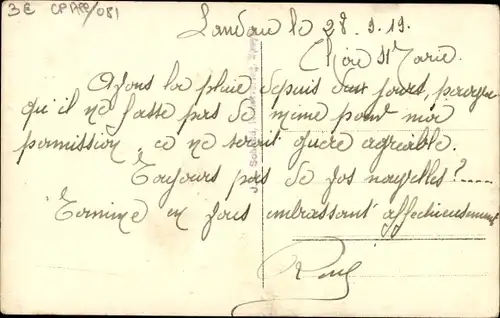 3E CPA Pp/081
Landau le 28.9.19.
Chère Ste Marie.
Ayons la pluie depuis deux jours, pourvu
qu'il ne fasse pas de même pour ma
permission, ce ne serait guère agréable.
Toujours pas de vos nouvelles?....
Termine en vous embrassant affectueusement